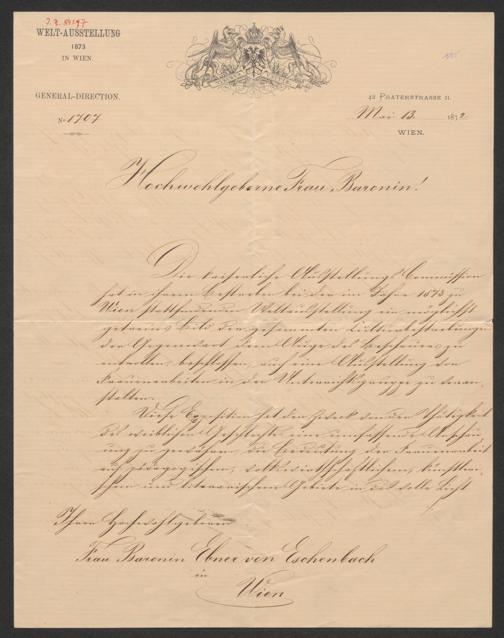 J. Z. 54197
WELT-AUSSTELLUNG
1873
IN WIEN.
GENERAL-DIRECTION.
42 PRATERSTRASSE II.
No 1707
Mai 13. 1872
WIEN.
Hochwohlgeborne Frau Baronin!
Die kaiserliche Ausstellungs Commission
hat in ihrem Bestreben bei der im Jahre 1873 zu
Wien stattfindenden Weltausstellung ein möglichst
getreues Bild der gesammten Culturbestrebungen
der Gegenwart dem Auge des Beschauers zu
entrollen, beschlossen, auch eine Ausstellung von
Frauenarbeiten in der Unterrichtsgruppe zu veran-
stalten.
Diese Exposition hat den Zweck von der Thätigkeit
des weiblichen Geschlechtes eine umfassende Anschau-
ung zu gewähren, die Bedeutung der Frauenarbeit
auf pädagogischem, volkswirthschaftlichem, künstleri-
schem und literarischem Gebiete in das volle Licht
Ihrer Hochwohlgeboren
Frau Baronin Ebner von Eschenbach
in
Wien